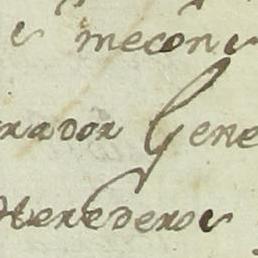 s mecons
rador Gene
Herederos